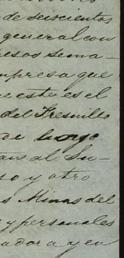 de seiscientos
general con
pesos sema-
empresa que
nceste es el
del Fresnillo
de luego
al Su-
so y otro
s Minas del
y personales
ador a y en